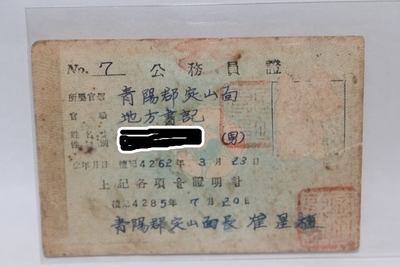 No. 7 公務員證
所屬官署 青陽郡定山面
官職 地方書記
(男)
生年月日 檀紀4262年3月23日
上記各項을證明함
檀紀4285年7月20日
青陽郡定山面長 崔星